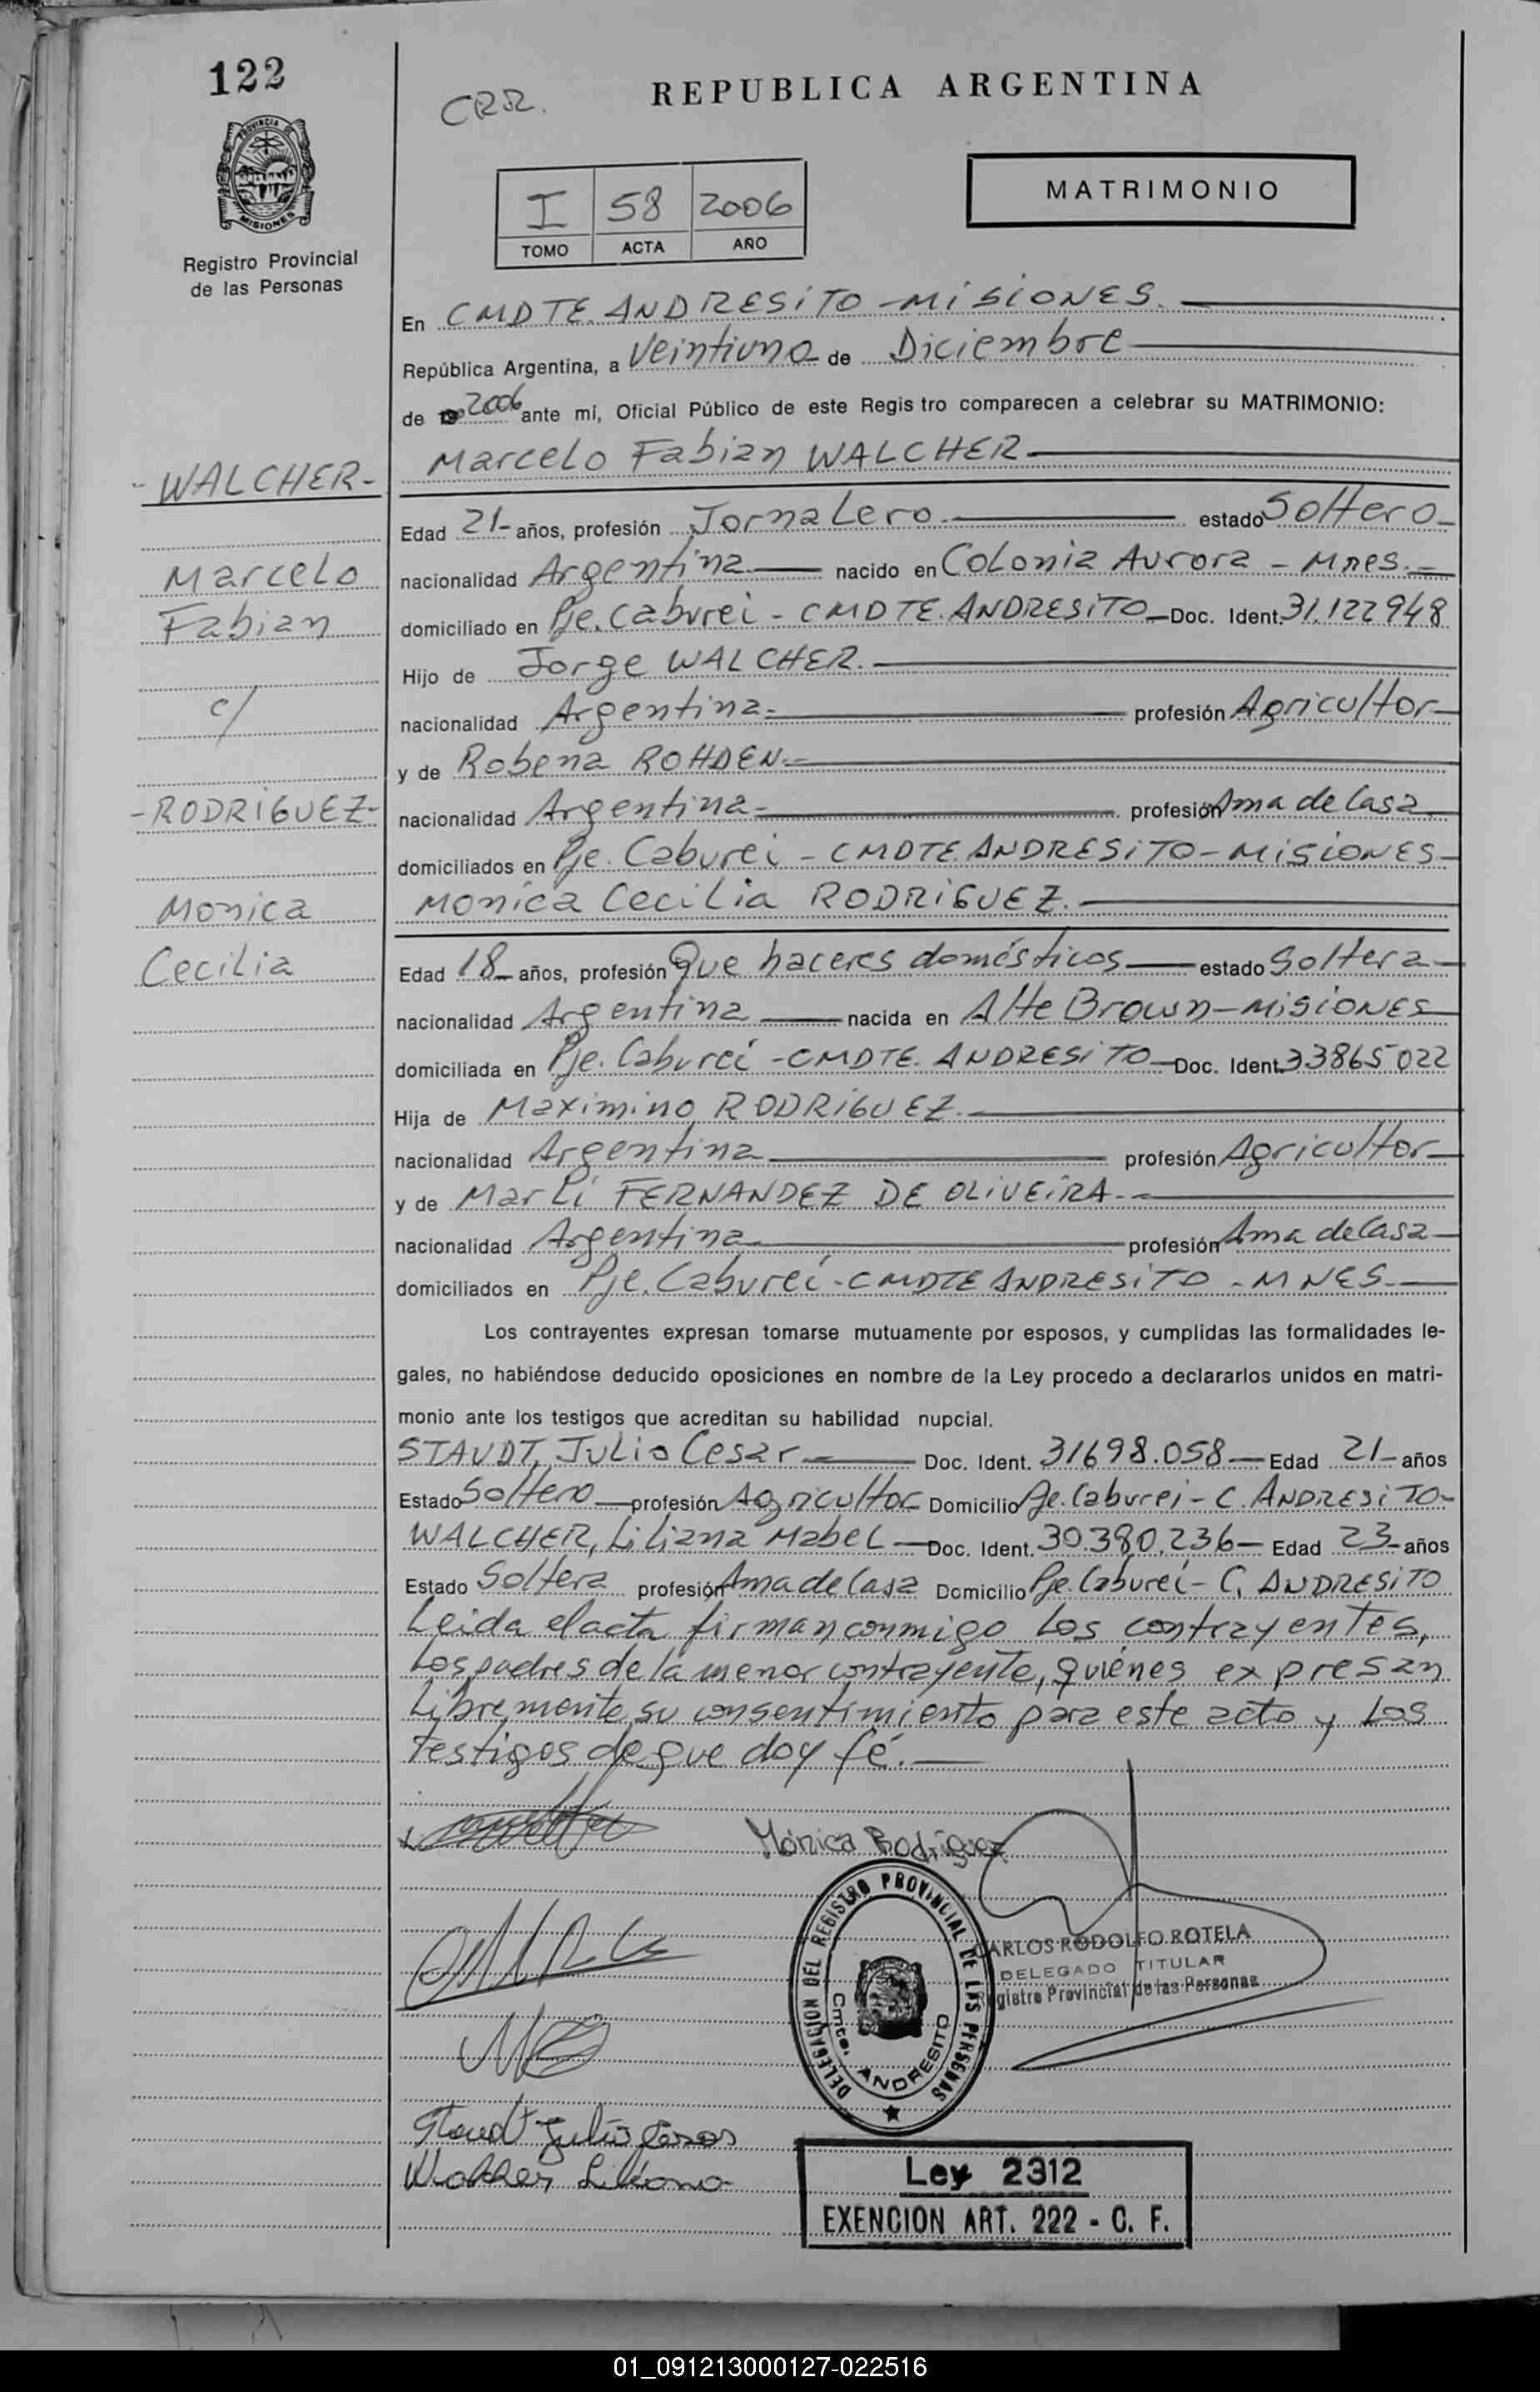 122
CRR.
REPUBLICA ARGENTINA
PROVINCIA DE MISIONES
Registro Provincial
de las Personas
I 58 2006
TOMO ACTA AÑO
MATRIMONIO
En CMDTE. ANDRESITO - MISIONES.
República Argentina, a Veintiuno de Diciembre
de 2006 ante mí, Oficial Público de este Regis tro comparecen a celebrar su MATRIMONIO:
Marcelo Fabian WALCHER
- WALCHER -
Edad 21- años, profesión Jornalero. estado Soltero
Marcelo
nacionalidad Argentina nacido en Colonia Aurora - Mnes.
Fabian
domiciliado en Pje. Caburei - CMDTE. ANDRESITO Doc. Ident. 31.122948
Hijo de Jorge WALCHER.
c/
nacionalidad Argentina. profesión Agricultor
y de Robena ROHDEN.
- RODRIGUEZ -
nacionalidad Argentina profesión Ama de Casa
domiciliados en Pje. Caburei - CMDTE. ANDRESITO - MISIONES
Monica
Monica Cecilia RODRIGUEZ.
Cecilia
Edad 18 años, profesión Que haceres domésticos estado Soltera
nacionalidad Argentina nacida en Alte Brown - MISIONES
domiciliada en Pje. Caburei - CMDTE. ANDRESITO Doc. Ident. 33865022
Hija de Maximino RODRIGUEZ.
nacionalidad Argentina profesión Agricultor
y de Marli FERNANDEZ DE OLIVEIRA.
nacionalidad Argentina profesión Ama de Casa
domiciliados en Pje. Caburei - CMDTE ANDRESITO - MNES.
Los contrayentes expresan tomarse mutuamente por esposos, y cumplidas las formalidades le-
gales, no habiéndose deducido oposiciones en nombre de la Ley procedo a declararlos unidos en matri-
monio ante los testigos que acreditan su habilidad nupcial.
STAUDT, Julio Cesar Doc. Ident. 31698.058 Edad 21- años
Estado Soltero profesión Agricultor Domicilio Pje. Caburei - C. ANDRESITO
WALCHER, Liliana Mabel Doc. Ident. 30.380.236 Edad 23- años
Estado Soltera profesión Ama de Casa Domicilio Pje. Caburei - C. ANDRESITO
Leida el acta firman conmigo los contrayentes,
los padres de la menor contrayente, quienes expresan
libremente su consentimiento para este acto y los
testigos de que doy fé.
Mónica Rodríguez
DELEGACION DEL REGISTRO PROVINCIAL DE LAS PERSONAS
Cmte. ANDRESITO
CARLOS RODOLFO ROTELA
DELEGADO TITULAR
Registro Provincial de las Personas
Staudt Julio Cesar
Walcher Liliana
Ley 2312
EXENCION ART. 222 - C. F.
01_091213000127-022516